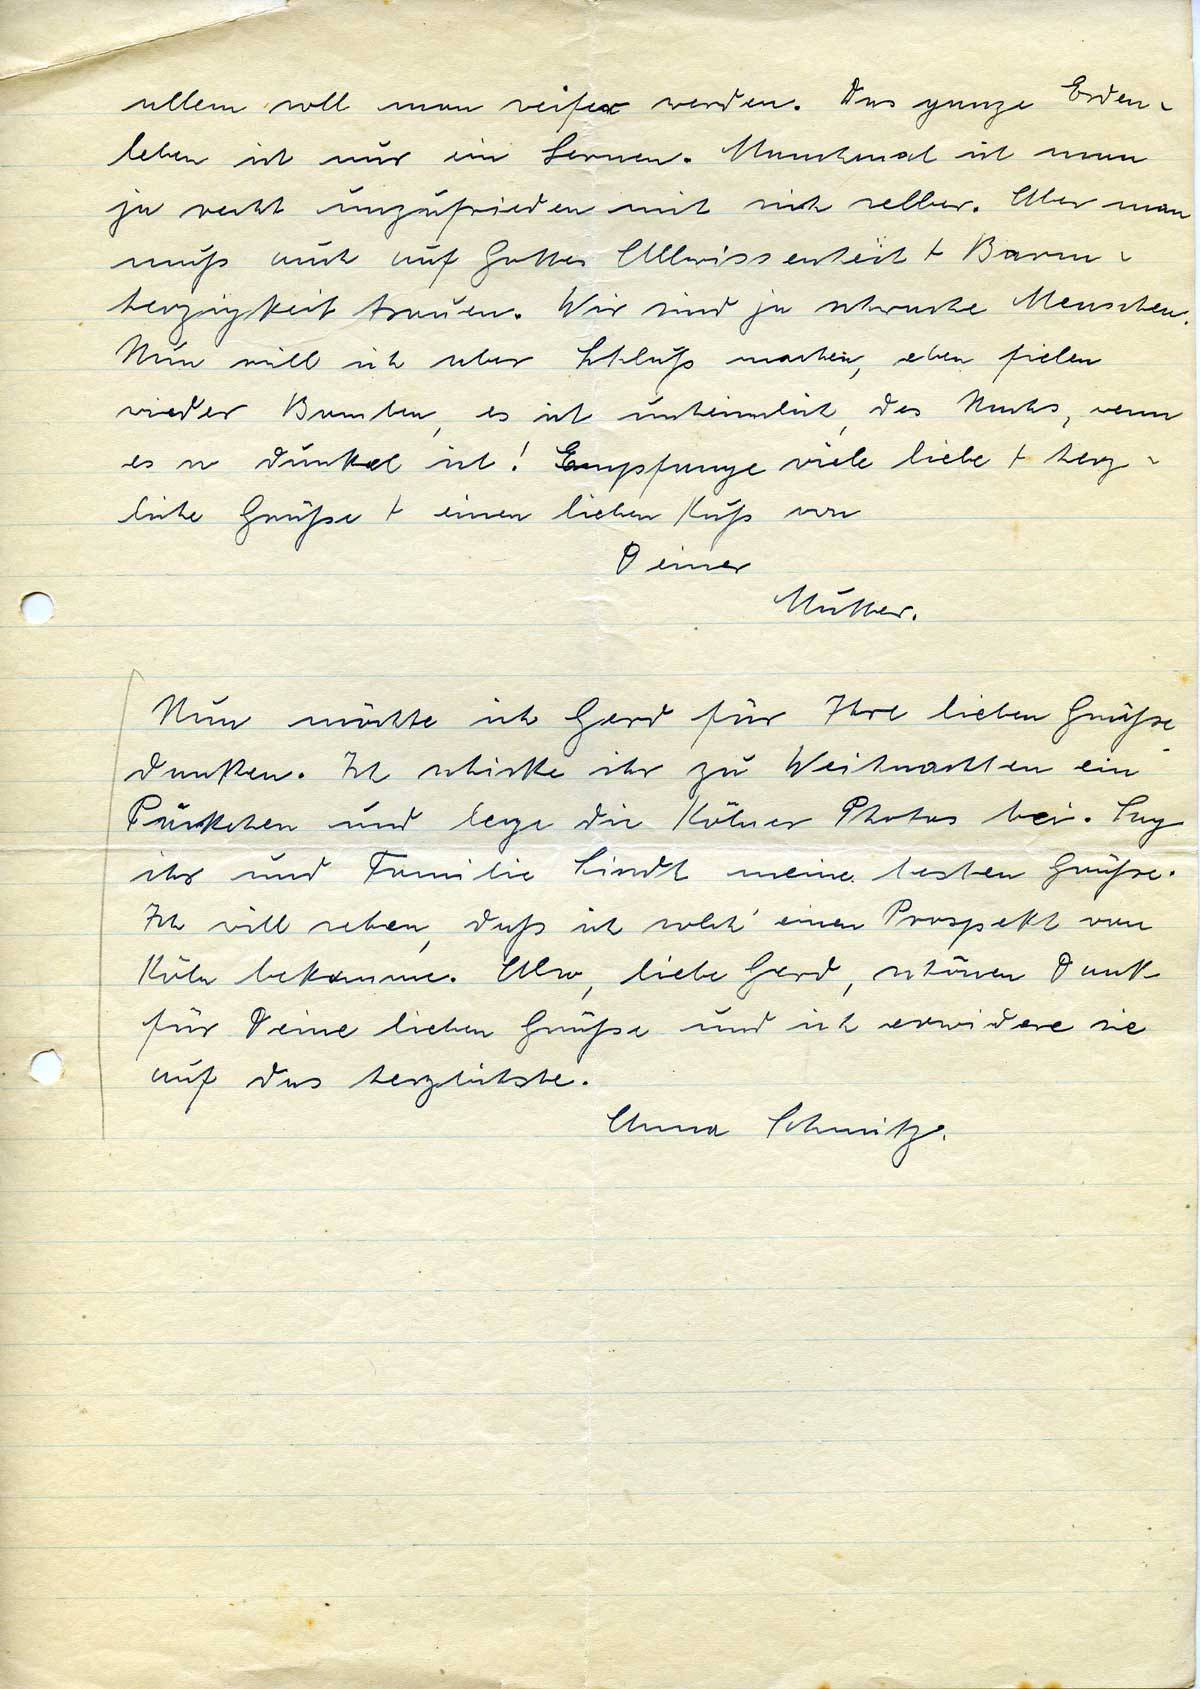 allem soll man reifer werden. Das ganze Erden-
leben ist nur ein Lernen. Manchmal ist man
ja recht unzufrieden mit sich selber. Aber man
muß auch auf Gottes Allwissenheit + Barm-
herzigkeit trauen. Wir sind ja schwache Menschen.
Nun will ich aber Schluß machen, eben fielen
wieder Bomben, es ist unheimlich, des Nachts, wenn
es so dunkel ist! Empfange viele liebe + herz-
liche Grüße + einen lieben Kuß von
Deiner
Mutter.
Nun möchte ich Gerd für Ihre lieben Grüße
danken. Ich schicke ihr zu Weihnachten ein
Päckchen und lege die Kölner Photos bei. Sag
ihr und Familie Lindt meine besten Grüße.
Ich will sehen, daß ich solch' einen Prospekt von
Köln bekomme. Also, liebe Gerd, schönen Dank
für Deine lieben Grüße und ich erwidere sie
auf das herzlichste.
Anna Schmitz.